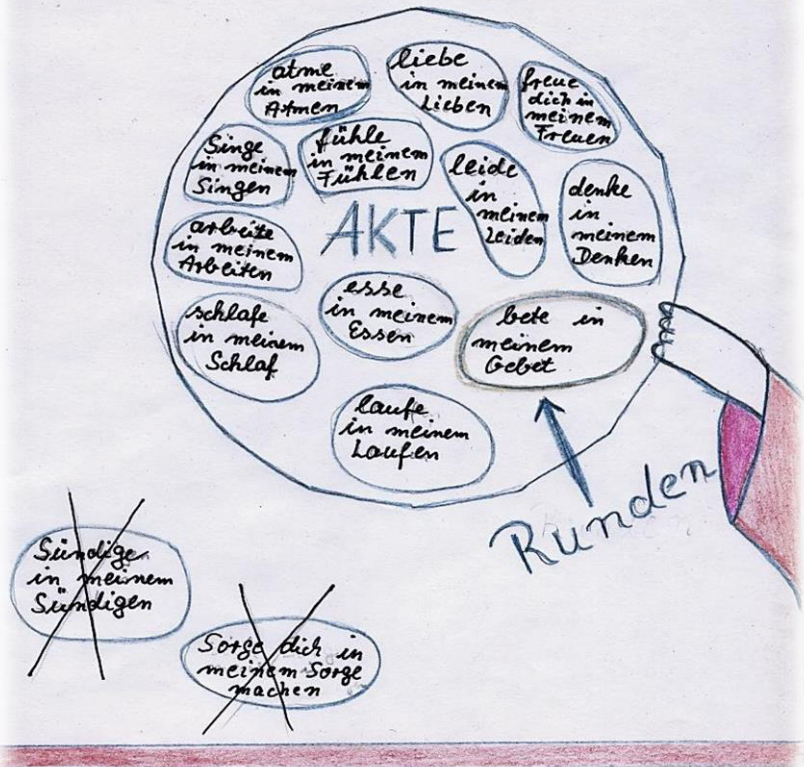 atme
in meinem
Atmen
liebe
in meinem
Lieben
freue
dich in
meinem
Freuen
Singe
in meinem
Singen
fühle
in meinem
Fühlen
leide
in
meinem
Leiden
denke
in
meinem
Denken
arbeite
in meinem
Arbeiten
AKTE
esse
in meinem
Essen
schlafe
in meinem
Schlaf
bete in
meinem
Gebet
laufe
in meinem
Laufen
Runden
Sündige
in meinem
Sündigen
Sorge dich in
meinem Sorge
machen